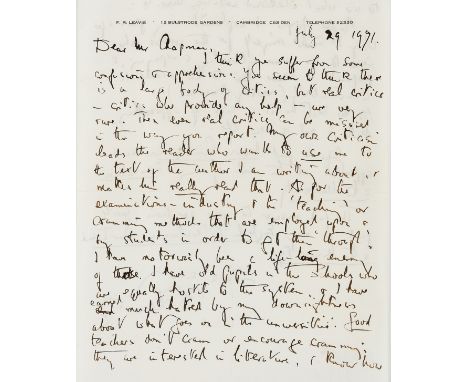 F. R. LEAVIS * 12 BULSTRODE GARDENS * CAMBRIDGE CB3 0EN * TELEPHONE 52530
July 29 1971.
Dear Mr Chapman,
I think you suffer from some
confusions & apprehensions. You seem to think there
is a large body of critics, but real critics
– critics who provide any help – are very
rare. Then even real critics can be misused
in the way you report. My own criticism
leads the reader who wants to use me to
the text of the author I am writing about, &
makes him really read that. As for the
examination-industry & the 'teaching' or
cramming methods that are employed upon &
by students in order to get them 'through'
I have notoriously been a life-long enemy
of these. I have old pupils in the schools who
are equally hostile to the system & I have
earned much hatred by my downrightness
about what goes on in the universities. Good
teachers don't cram or encourage cramming;
they are interested in literature, & know how